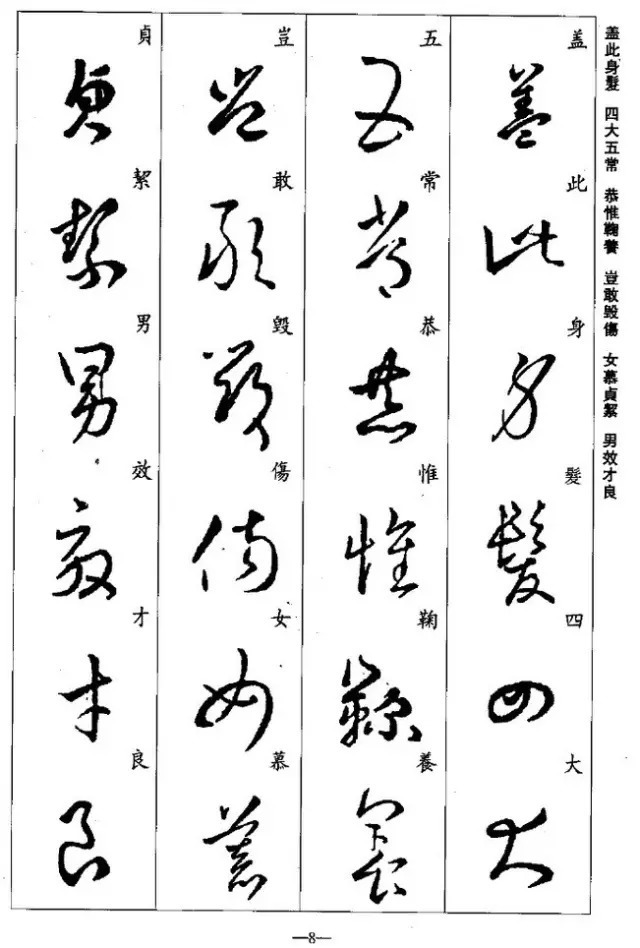 盖此身髮 四大五常 恭惟鞠養 豈敢毀傷 女慕貞絜 男效才良
盖此身髮四大
五常恭惟鞠養
豈敢毀傷女慕
貞絜男效才良
—8—